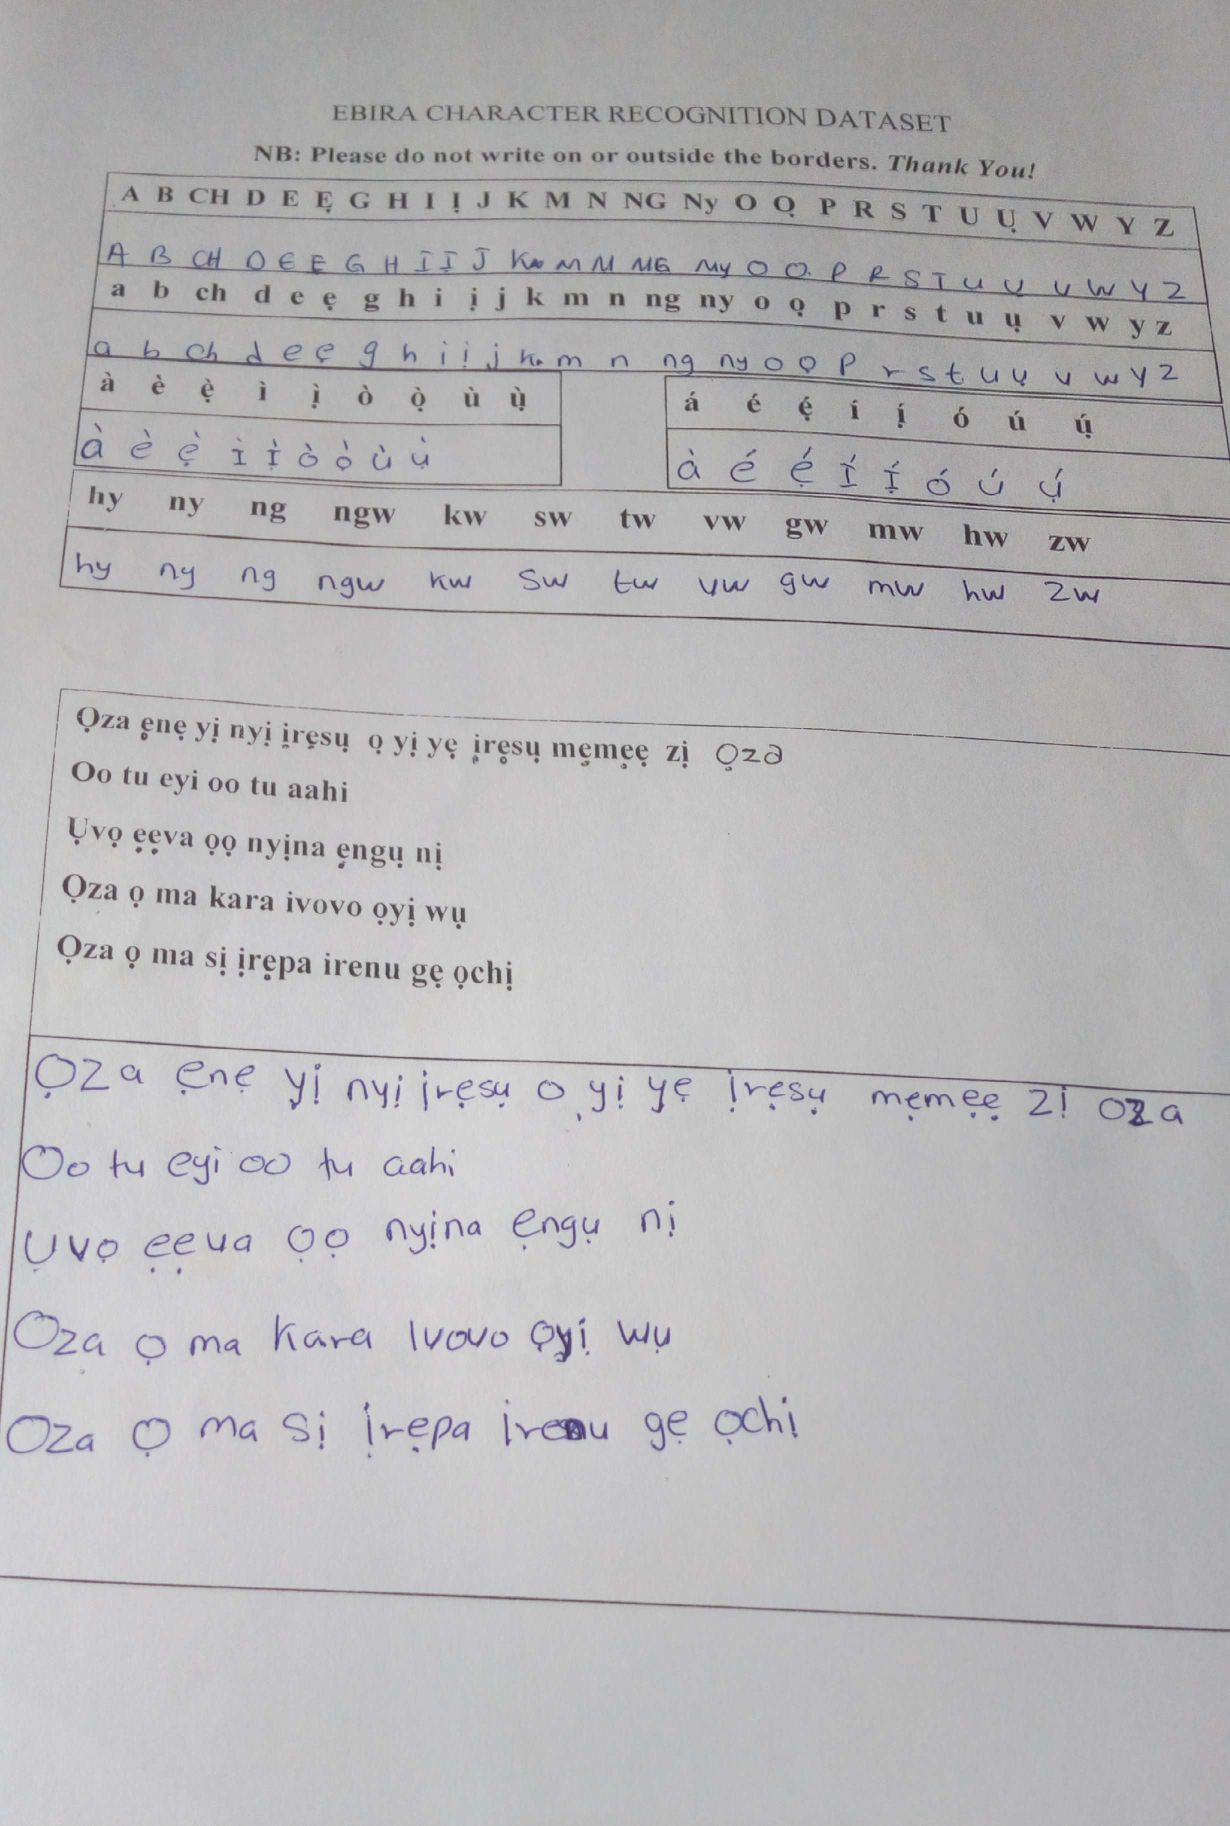 EBIRA CHARACTER RECOGNITION DATASET
NB: Please do not write on or outside the borders. Thank You!
A B CH D E Ẹ G H I Ị J K M N NG Ny O Ọ P R S T U Ụ V W Y Z
A B CH D E E G H I I J K M N NG Ny O O P R S T U U V W Y Z
a b ch d e ẹ g h i ị j k m n ng ny o ọ p r s t u ụ v w y z
a b ch d e ẹ g h i ị j k m n ng ny o ọ p r s t u ụ v w y z
à è ẹ̀ ì ị̀ ò ọ̀ ù ụ̀
á é ẹ́ í ị́ ó ú ụ́
à è ẹ̀ ì ị̀ ò ọ̀ ù ụ̀
à é ẹ́ í ị́ ó ú ụ́
hy ny ng ngw kw sw tw vw gw mw hw zw
hy ny ng ngw kw sw tw vw gw mw hw zw
Ọza ẹnẹ yị nyị ịrẹsụ ọ yị yẹ ịrẹsụ mẹmẹẹ zị ọza
Oo tu eyi oo tu aahi
Ụvọ ẹẹva ọọ nyịna ẹngụ nị
Ọza ọ ma kara ivovo ọyị wụ
Ọza ọ ma sị ịrẹpa irenu gẹ ọchị
Ọza ẹnẹ yị nyị ịrẹsụ ọ yị yẹ ịrẹsụ mẹmẹẹ zị oza
Oo tu eyi oo tu aahi
Ụvọ ẹẹva ọọ nyịna ẹngụ nị
Oza ọ ma kara ivovo ọyị wụ
Oza ọ ma sị ịrẹpa irenu gẹ ọchị